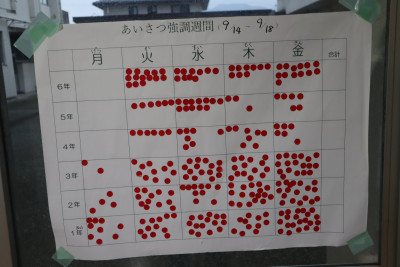 あいさつ強調週間 (9/14 ~ 9/18)
月 火 水 木 金 合計
6年
5年
4年
3年
2年
1年